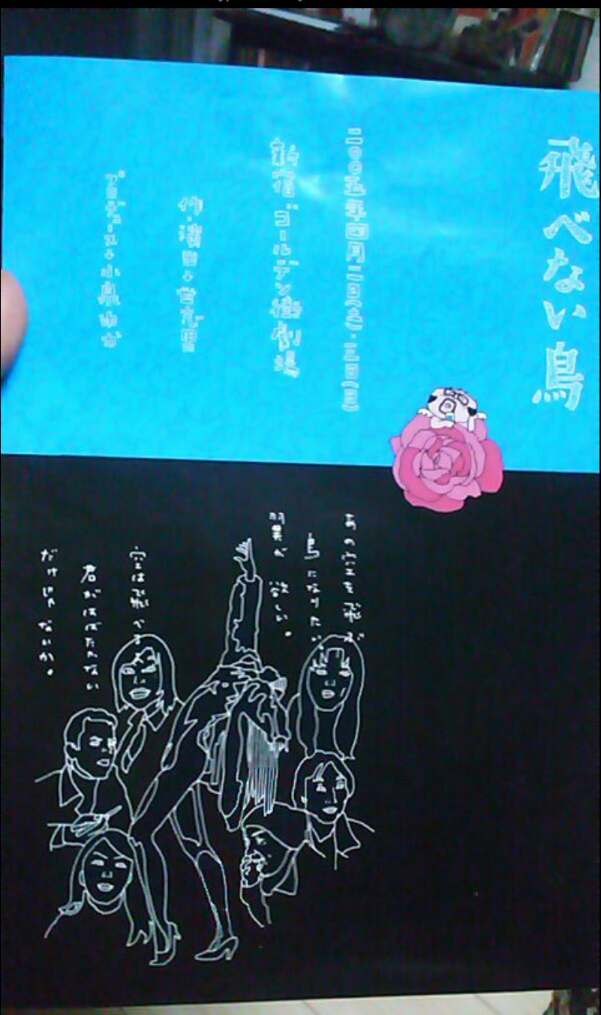 飛べない鳥
二〇〇五年四月二日(土)・三日(日)
新宿ゴールデン街劇場
作・濱田
プロデュース・小泉ゆか
あの空を飛ぶ
鳥になりたい
羽翼が欲しい。
空は飛べる
君がはばたかない
だけじゃないか。